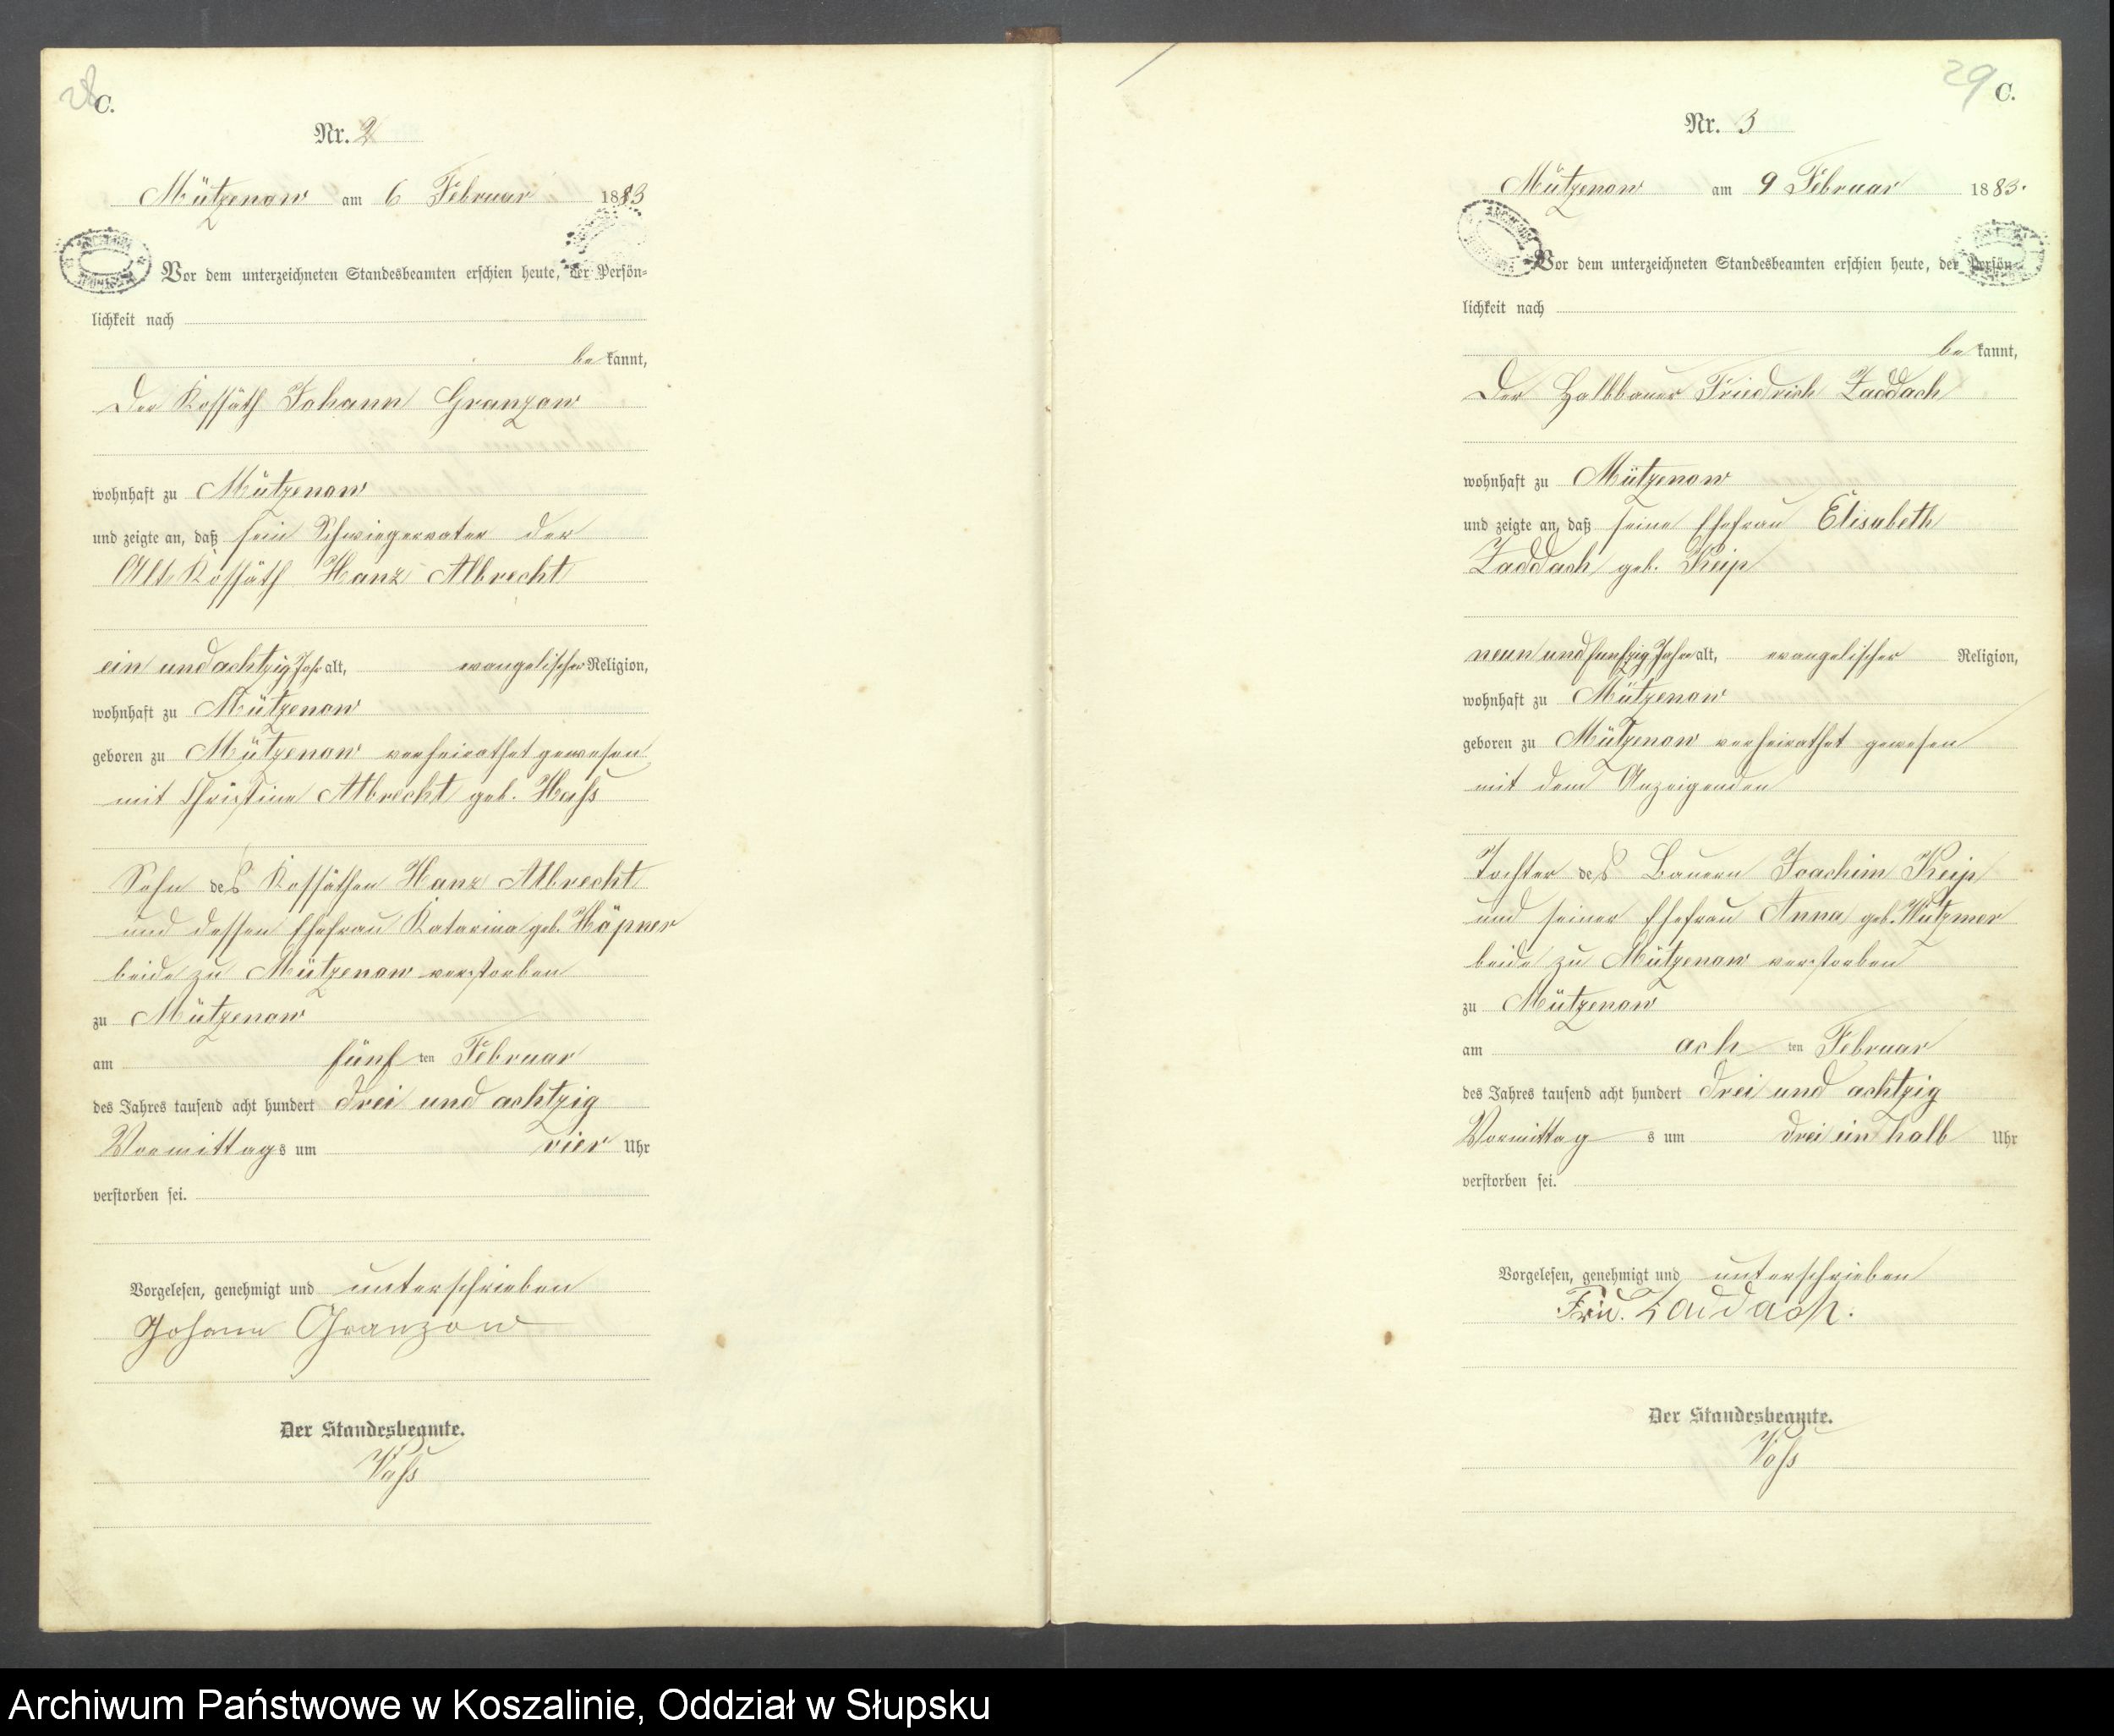 28
C.
Nr. 2
Mützenow am 6 Februar 1883
Vor dem unterzeichneten Standesbeamten erschien heute, der Persön-
lichkeit nach
be kannt,
Der Kossäth Johann Granzow
wohnhaft zu Mützenow
und zeigte an, daß sein Schwiegervater der
Alt Kossäth Hanz Albrecht
ein und achtzig Jahr alt, evangelischer Religion,
wohnhaft zu Mützenow
geboren zu Mützenow verheirathet gewesen
mit Christine Albrecht geb. Hass
Sohn des Kossäthen Hanz Albrecht
und dessen Ehefrau Katarina geb. Höpner
beide zu Mützenow verstorben
zu Mützenow
am fünf ten Februar
des Jahres tausend acht hundert drei und achtzig
Vormittags um vier Uhr
verstorben sei.
Vorgelesen, genehmigt und unterschrieben
Johann Granzow
Der Standesbeamte.
Voss
29
C.
Nr. 3
Mützenow am 9 Februar 1883.
Vor dem unterzeichneten Standesbeamten erschien heute, der Persön-
lichkeit nach
be kannt,
Der Halbbauer Friedrich Zaddach
wohnhaft zu Mützenow
und zeigte an, daß seine Ehefrau Elisabeth
Zaddach geb. Keip
neun und funfzig Jahre alt, evangelischer Religion,
wohnhaft zu Mützenow
geboren zu Mützenow verheirathet gewesen
mit dem Anzeigenden
Tochter des Bauern Joachim Keip
und seiner Ehefrau Anna geb. Wützmer
beide zu Mützenow verstorben
zu Mützenow
am ach ten Februar
des Jahres tausend acht hundert drei und achtzig
Vormittag s um drei ein halb Uhr
verstorben sei.
Vorgelesen, genehmigt und unterschrieben
Frid. Zaddach.
Der Standesbeamte.
Voss
Archiwum Państwowe w Koszalinie, Oddział w Słupsku